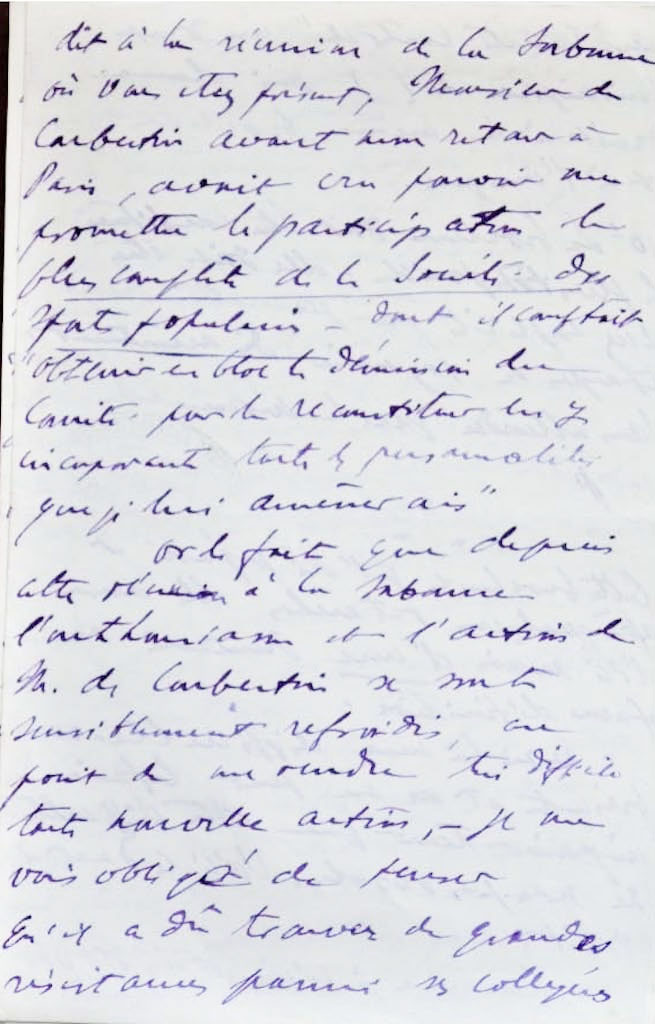 dit à la réunion de la Sorbonne
où vous étiez présent, Monsieur de
Coubertin avant mon retour à
Paris, avait cru pouvoir me
promettre la participation la
plus complète de la Société des
Sports populaires – dont il comptait
"obtenir en bloc la démission du
Comité pour le reconstituer en y
incorporant toutes les personnalités
que je lui amènerais"
or le fait que depuis
cette réunion à la Sorbonne
l'enthousiasme et l'action de
M. de Coubertin se sont
sensiblement refroidis, au
point de me rendre très difficile
toute nouvelle action, – je me
vois obligé de penser
qu'il a dû trouver de grandes
résistances parmi ses collègues